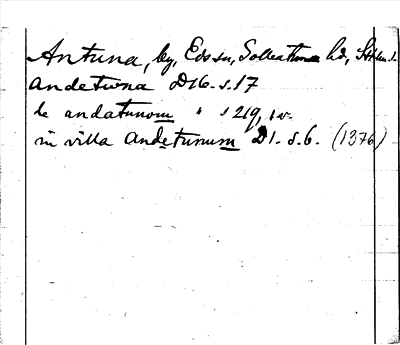 Antuna, by, Eds sn, Sollentuna hd, Sthlm. l.
andetuna D16. s. 17
le andatunom " s 219, iv.
in villa andetunum D1. s. 6. (1376)